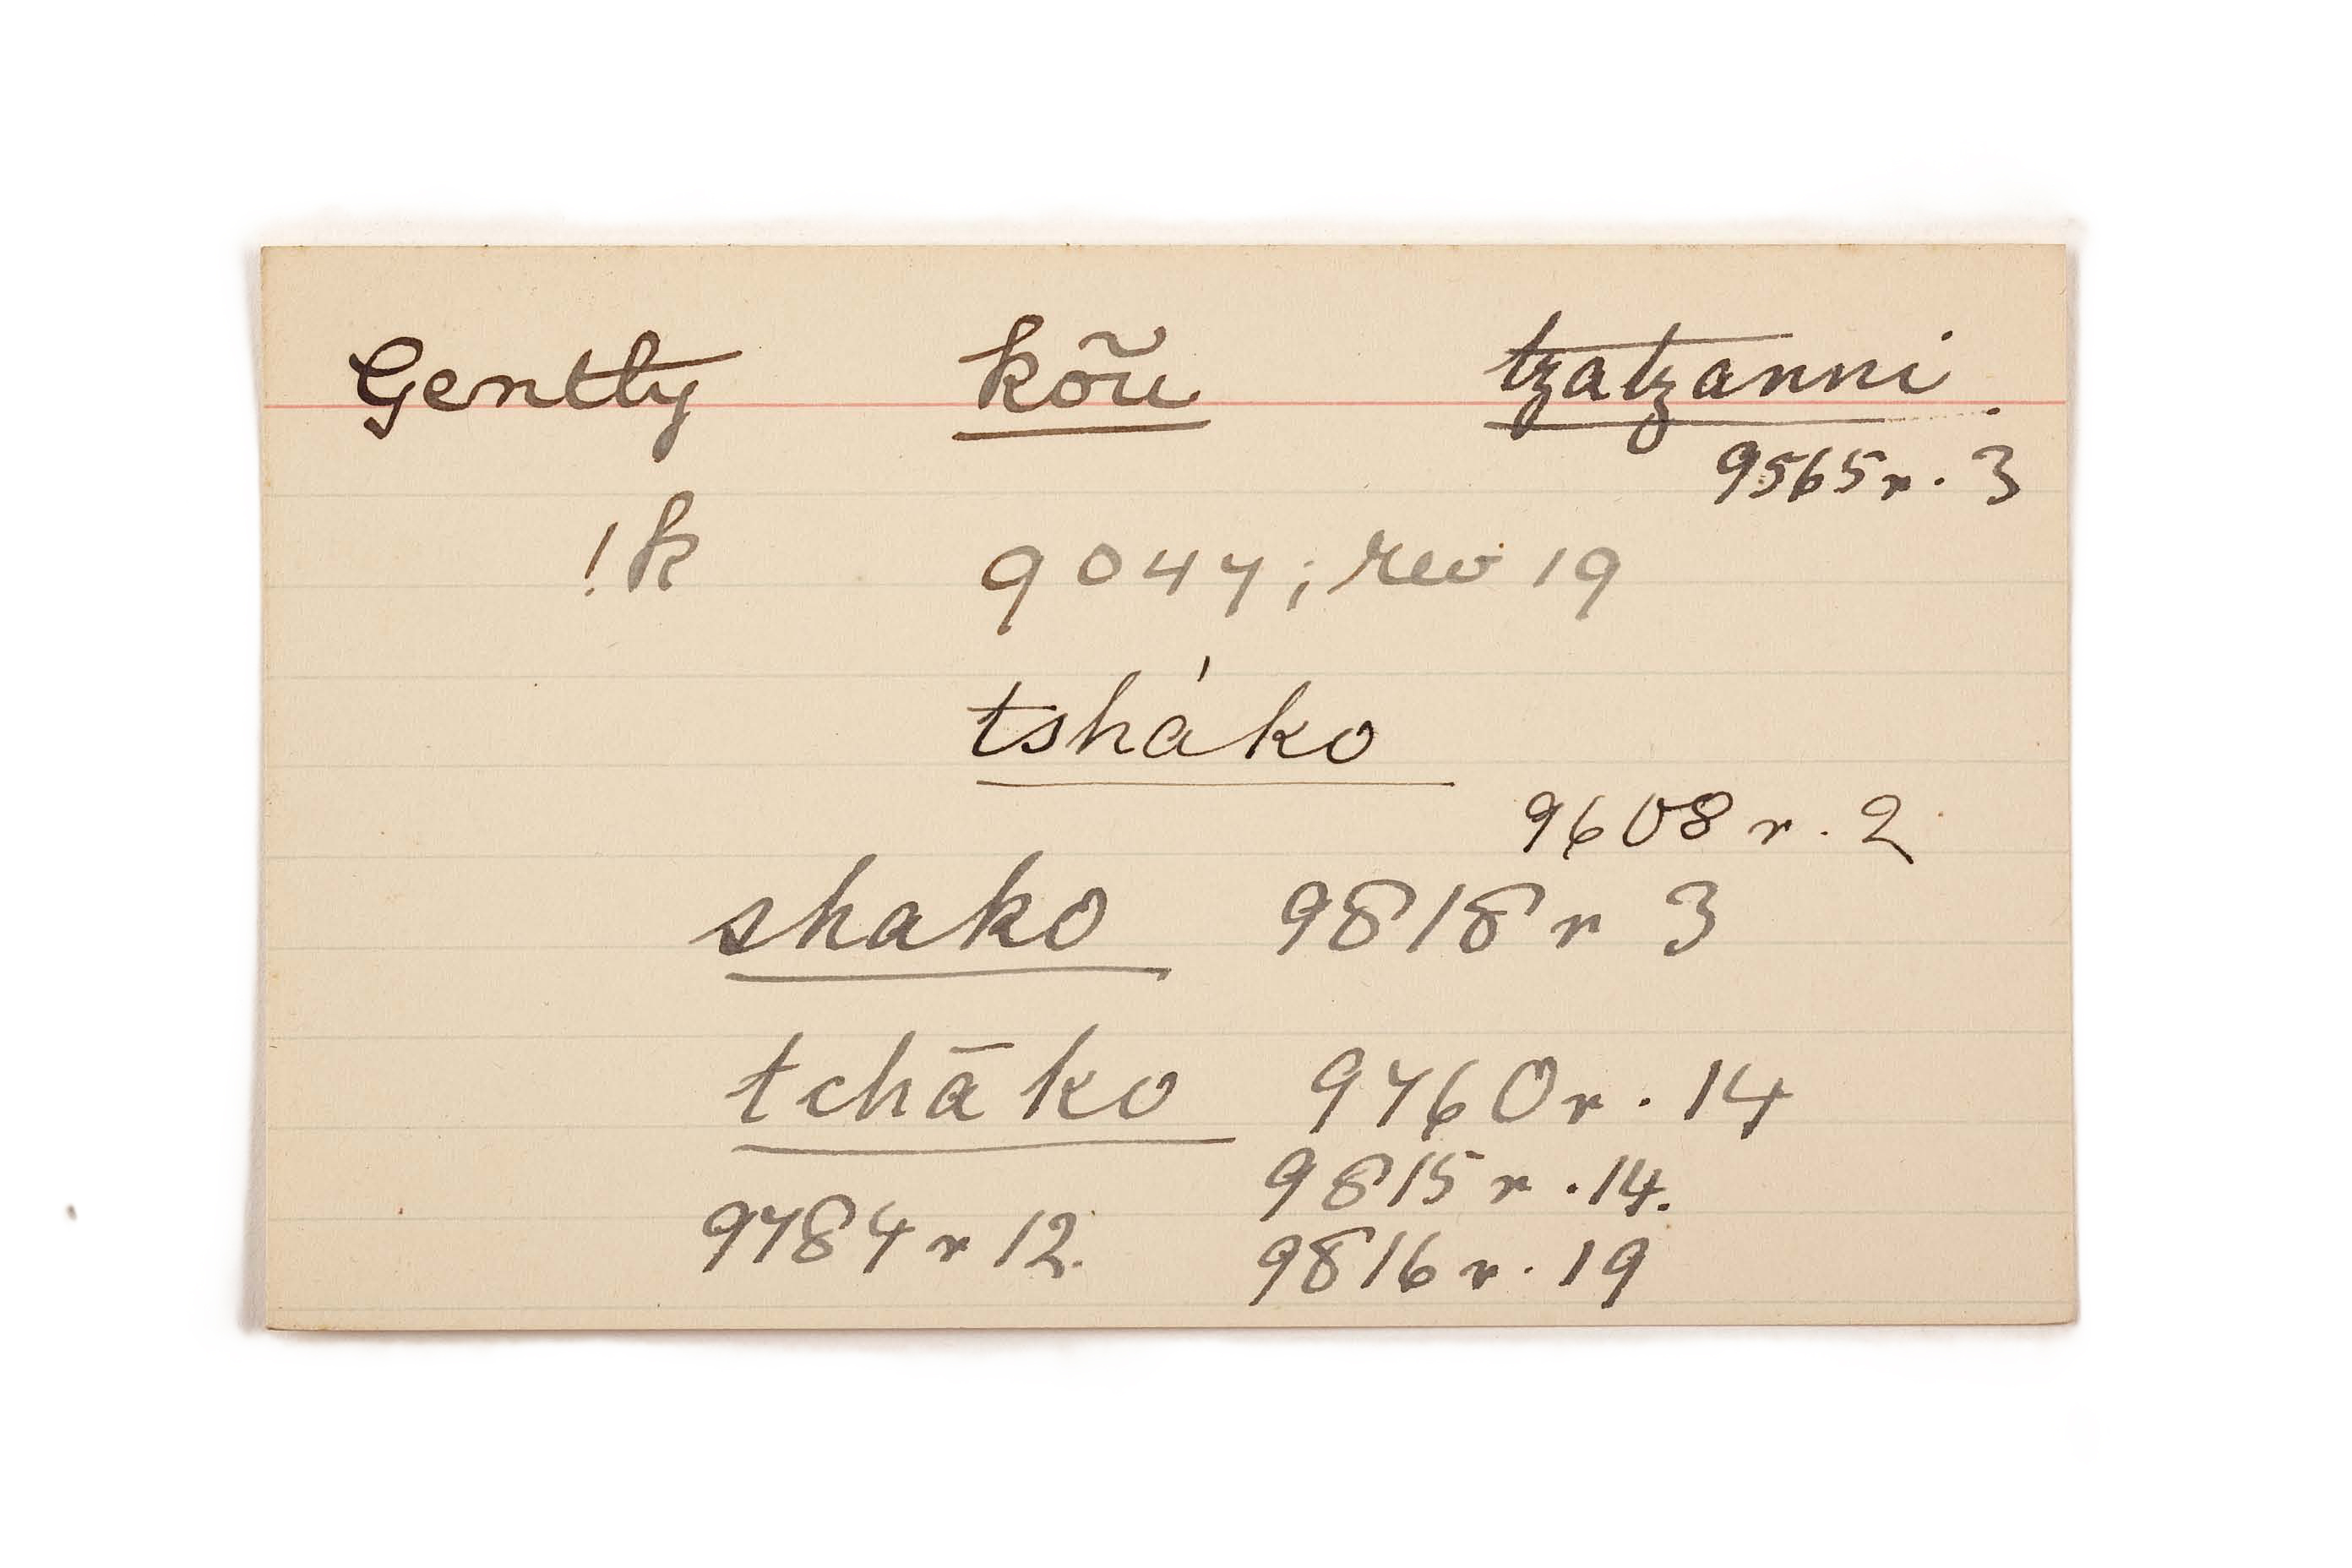 Gently kõu tzatzanni.
9565 r. 3
!k 9047; rev 19
tsháko
9608 r. 2
shako 9818 r 3
tchāko 9760 r. 14
9815 r. 14.
9784 r 12.
9816 r. 19